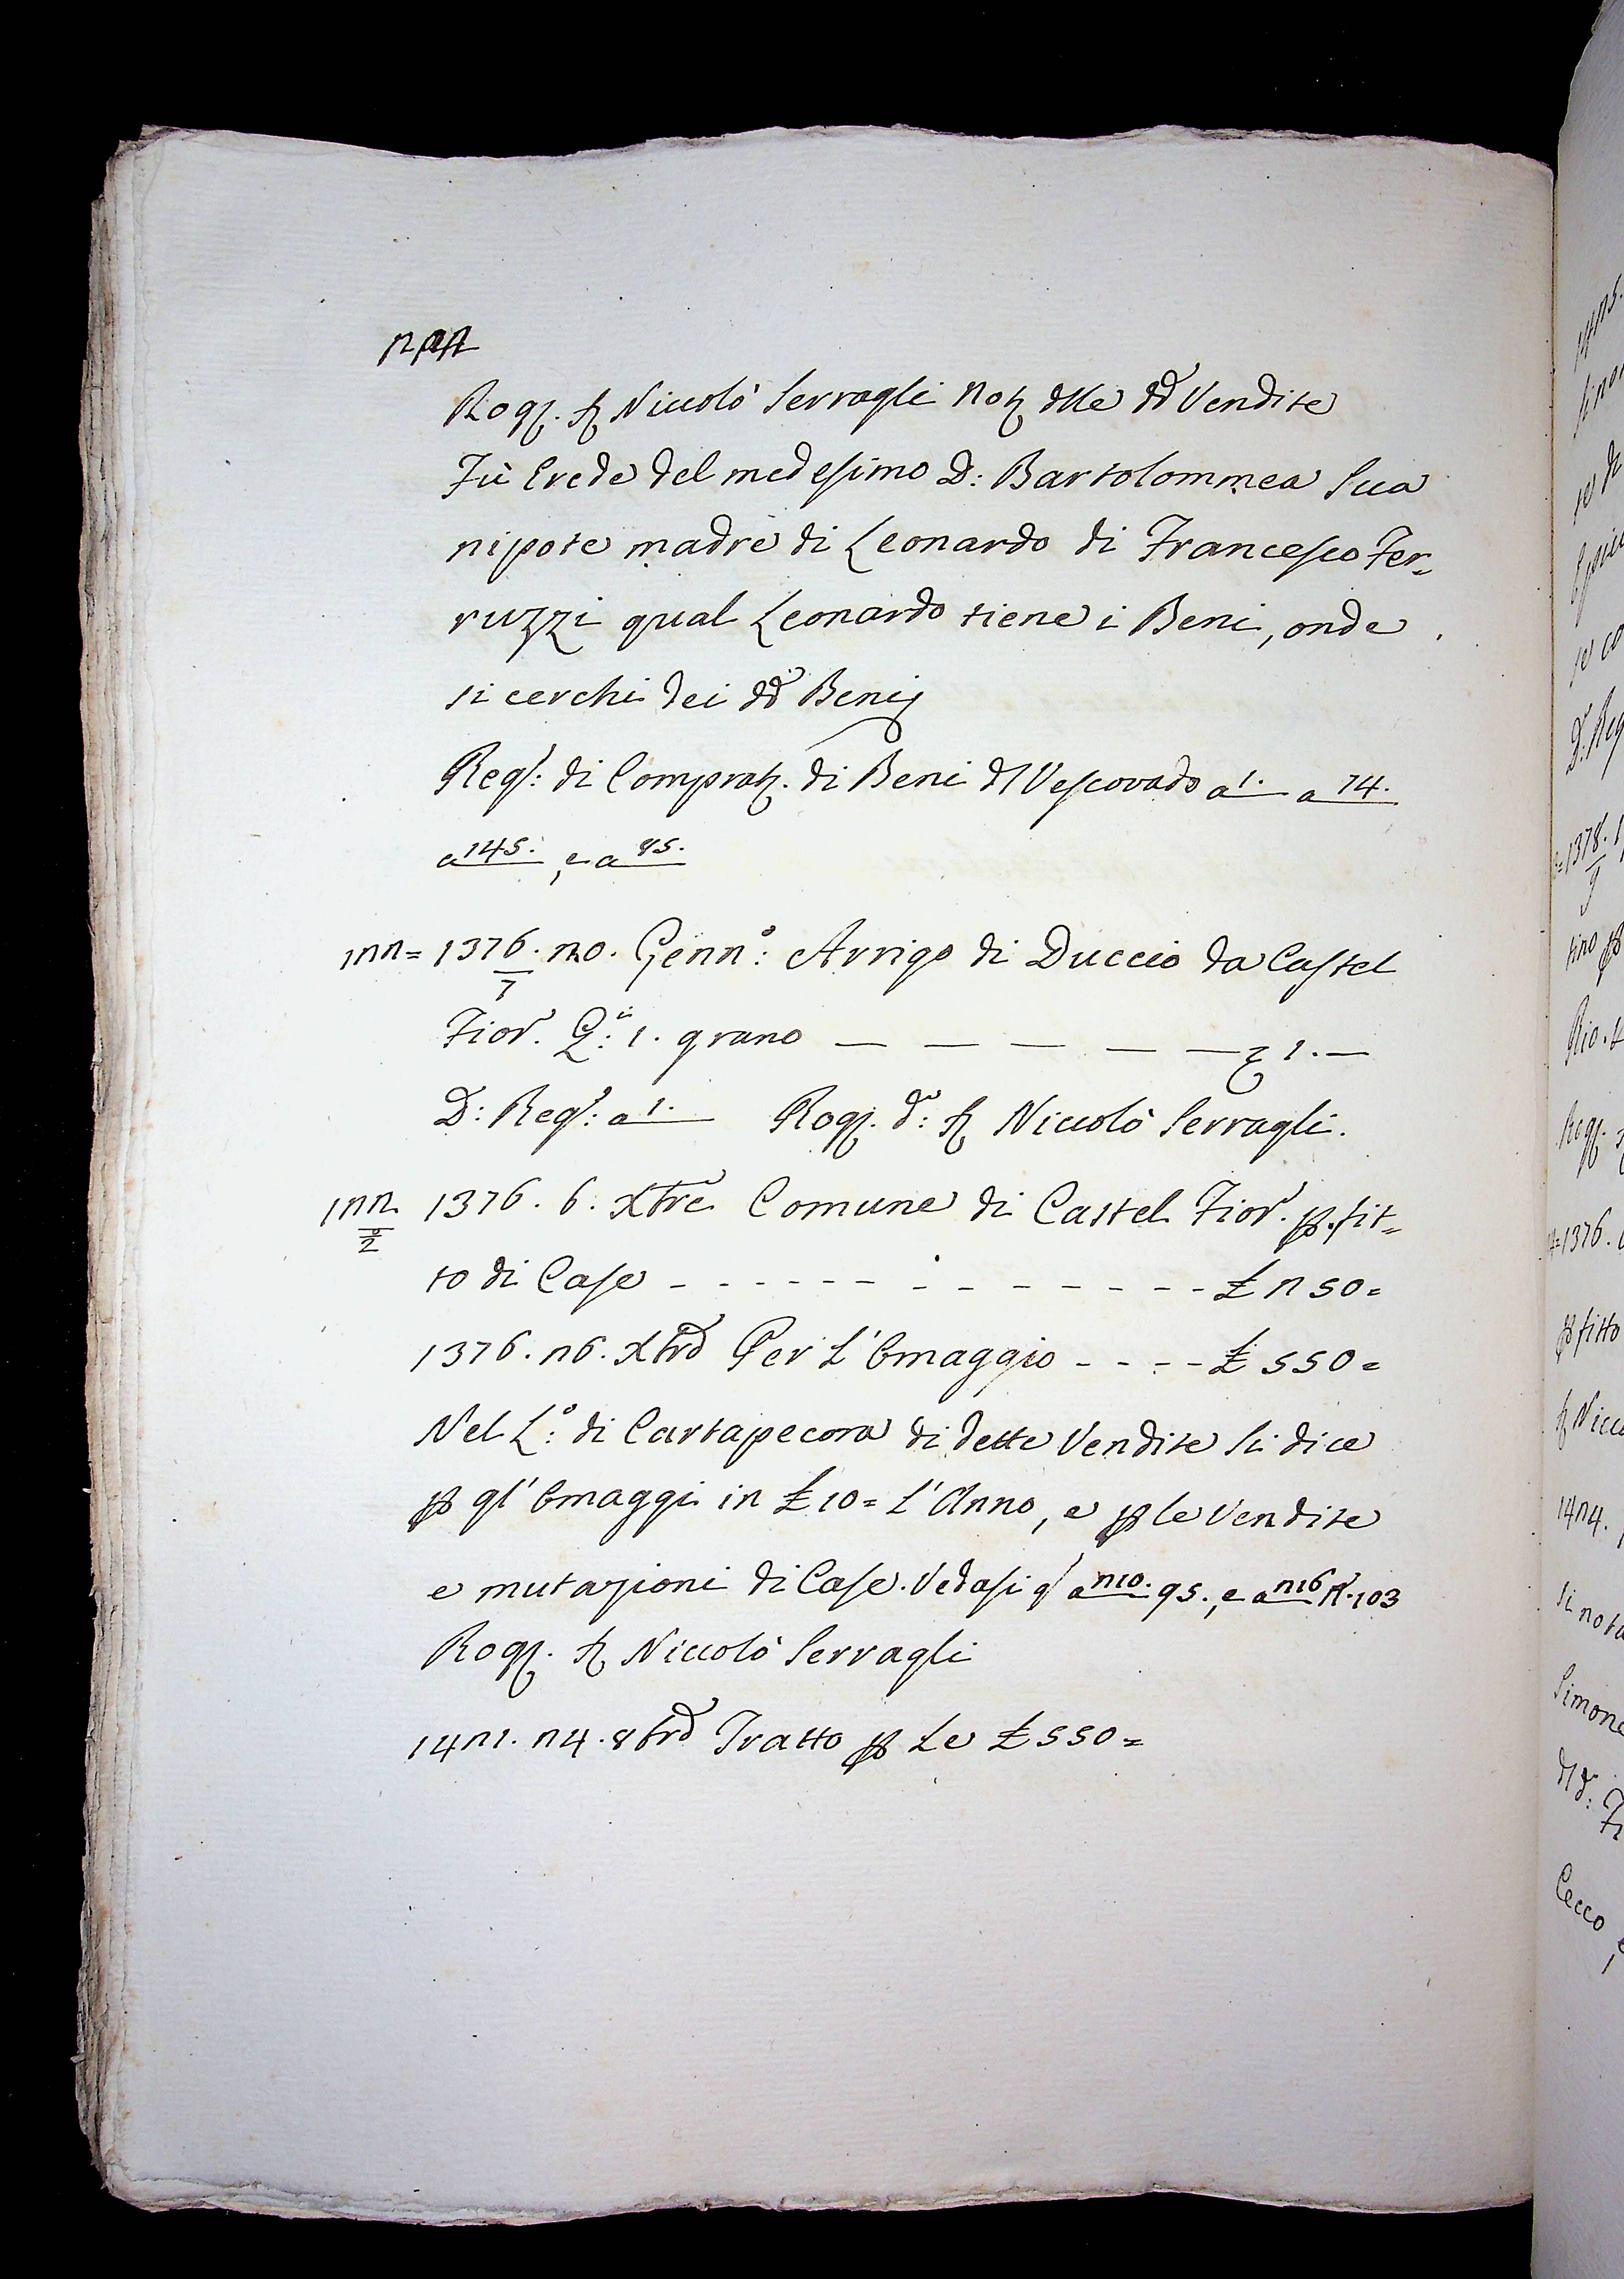 Rog. Sr Niccolò Serragli Not. dlle dd. Vendite
Fù Erede del medesimo D: Bartolommea Sua
nipote madre di Leonardo di Francesco Fer=
ruzzi qual Leonardo tiene i Beni, onde
si cerchi dei dd. Beni
Reg.: di Comprat. di Beni dl Vescovado a 1. a 74.
a 145., e a 85.
122= 1376/7. 20. Genn.o: Arrigo di Duccio da Castel
Fior. Q.: 1. grano — — — — — 1. —
D: Reg.: a 1. Rog. d.: Sr Niccolò Serragli.
122/2 1376. 6. Xbre Comune di Castel Fior. p. fit=
to di Case - - - - - - - - - - - - - £ 250=
1376. 26. Xbre Per L'Omaggio - - - - £ 550=
Nel L.o: di Cartapecora di dette Vendite Si dice
p gl'Omaggi in £ 10= L'Anno, e p le Vendite
e mutazioni di Case. Vedasi q a 210. 95., e a 216 103
Rog. Sr Niccolò Serragli
1421. 24. 8bre Tratto p Le £ 550=
1378.
tino
Rio.
Rog.
1376.
p fitto
Sr Nicc
1424.
Si nota
Simone
Cecco